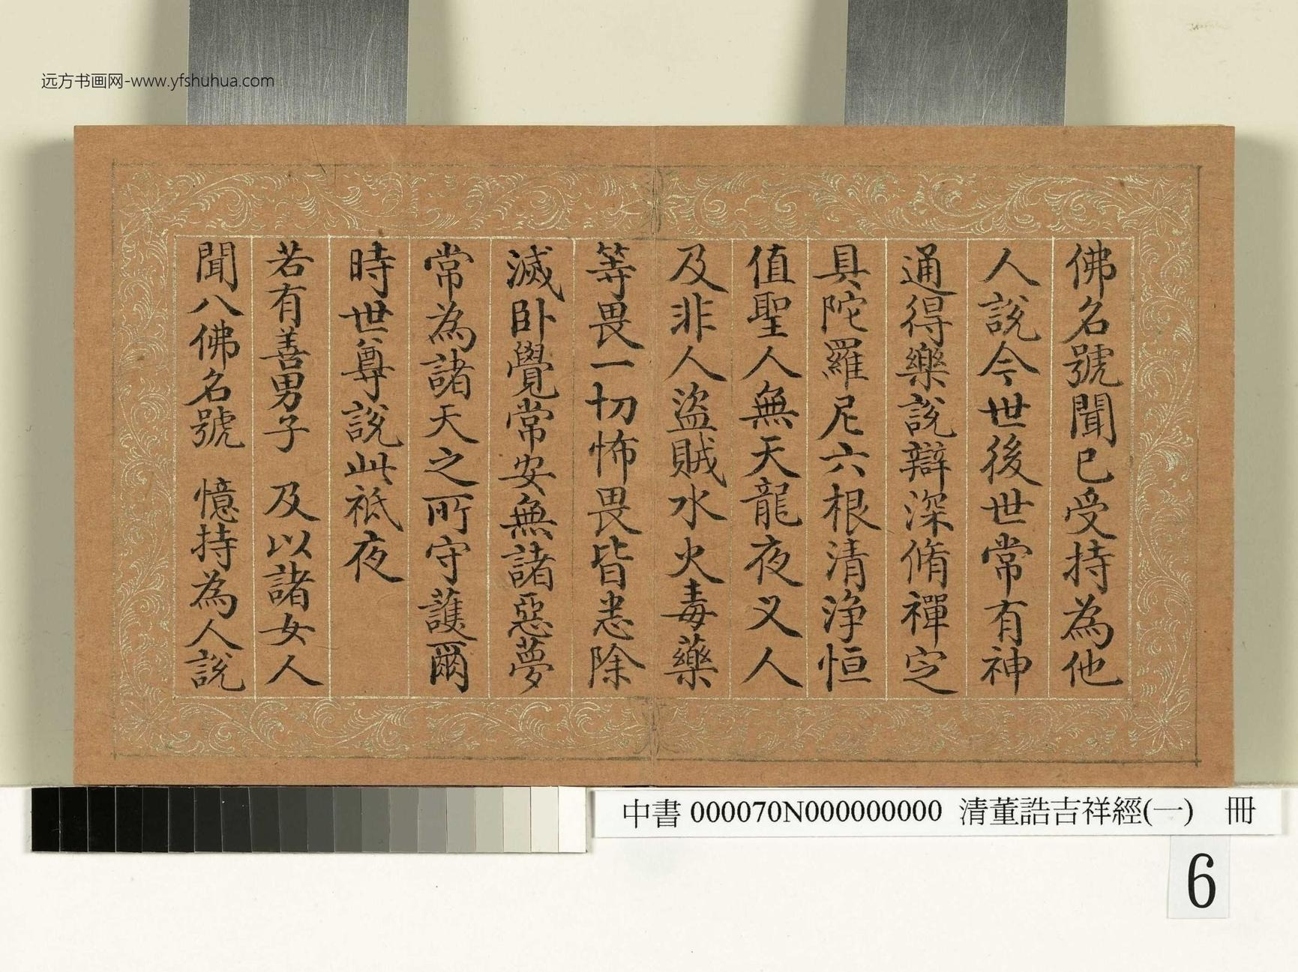 远方书画网-www.yfshuhua.com
佛名號聞已受持為他
人說今世後世常有神
通得樂說辯深脩禪定
具陀羅尼六根清淨恒
值聖人無天龍夜叉人
及非人盜賊水火毒藥
等畏一切怖畏皆悉除
滅卧覺常安無諸惡夢
常為諸天之所守護爾
時世尊說此祇夜
若有善男子 及以諸女人
聞八佛名號 憶持為人說
中書 000070N000000000 清董誥吉祥經(一) 冊
6